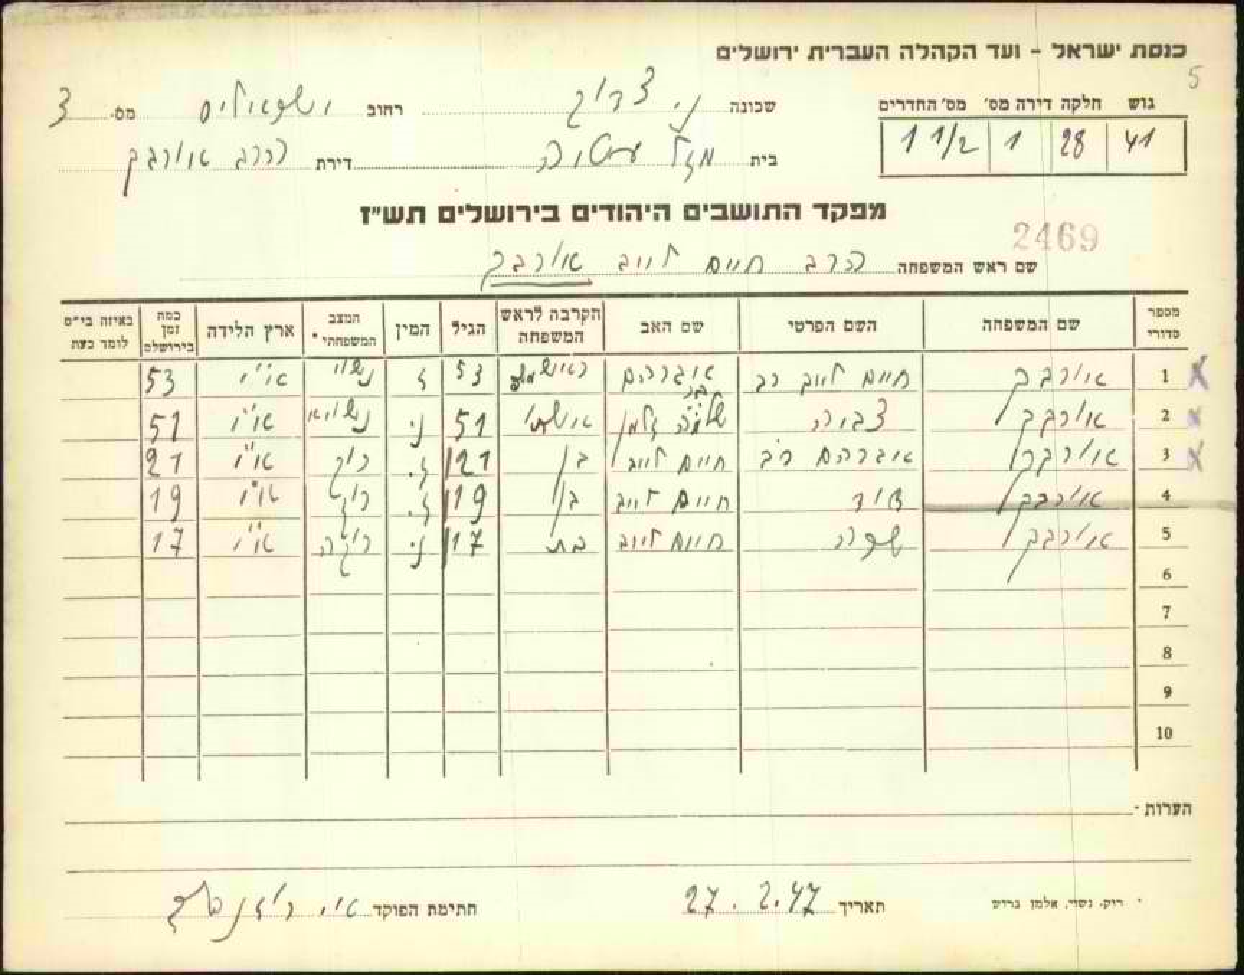 כנסת ישראל - ועד הקהלה העברית ירושלים
5
גוש חלקה דירה מס' מס' החדרים
41 28 1 1 1/2
שכונה נ. צדוק רחוב מס. 3
בית מזל דירת הרב אורבך
מפקד התושבים היהודים בירושלים תש"ז
2469
שם ראש המשפחה הרב חיים לייב אורבך
מספר סדורי שם המשפחה השם הפרטי שם האב הקרבה לראש המשפחה הגיל המין המצב המשפחתי • ארץ הלידה כמה זמן בירושלים באיזה בי"ס לומד כעת
1 אורבך חיים לייב רב אברהם 53 ז נשוי א"י 53
2 אורבך צביה שלמה זלמן 51 נ. נשואה א"י 51
3 אורבך אברהם דב חיים לייב בן 21 ז. רוק א"י 21
4 אורבך דוד חיים לייב בן 19 ז. רוק א"י 19
5 אורבך שרה חיים לייב בת 17 נ. רוקה א"י 17
6
7
8
9
10
הערות -
תאריך 27.2.47 חתימת הפוקד